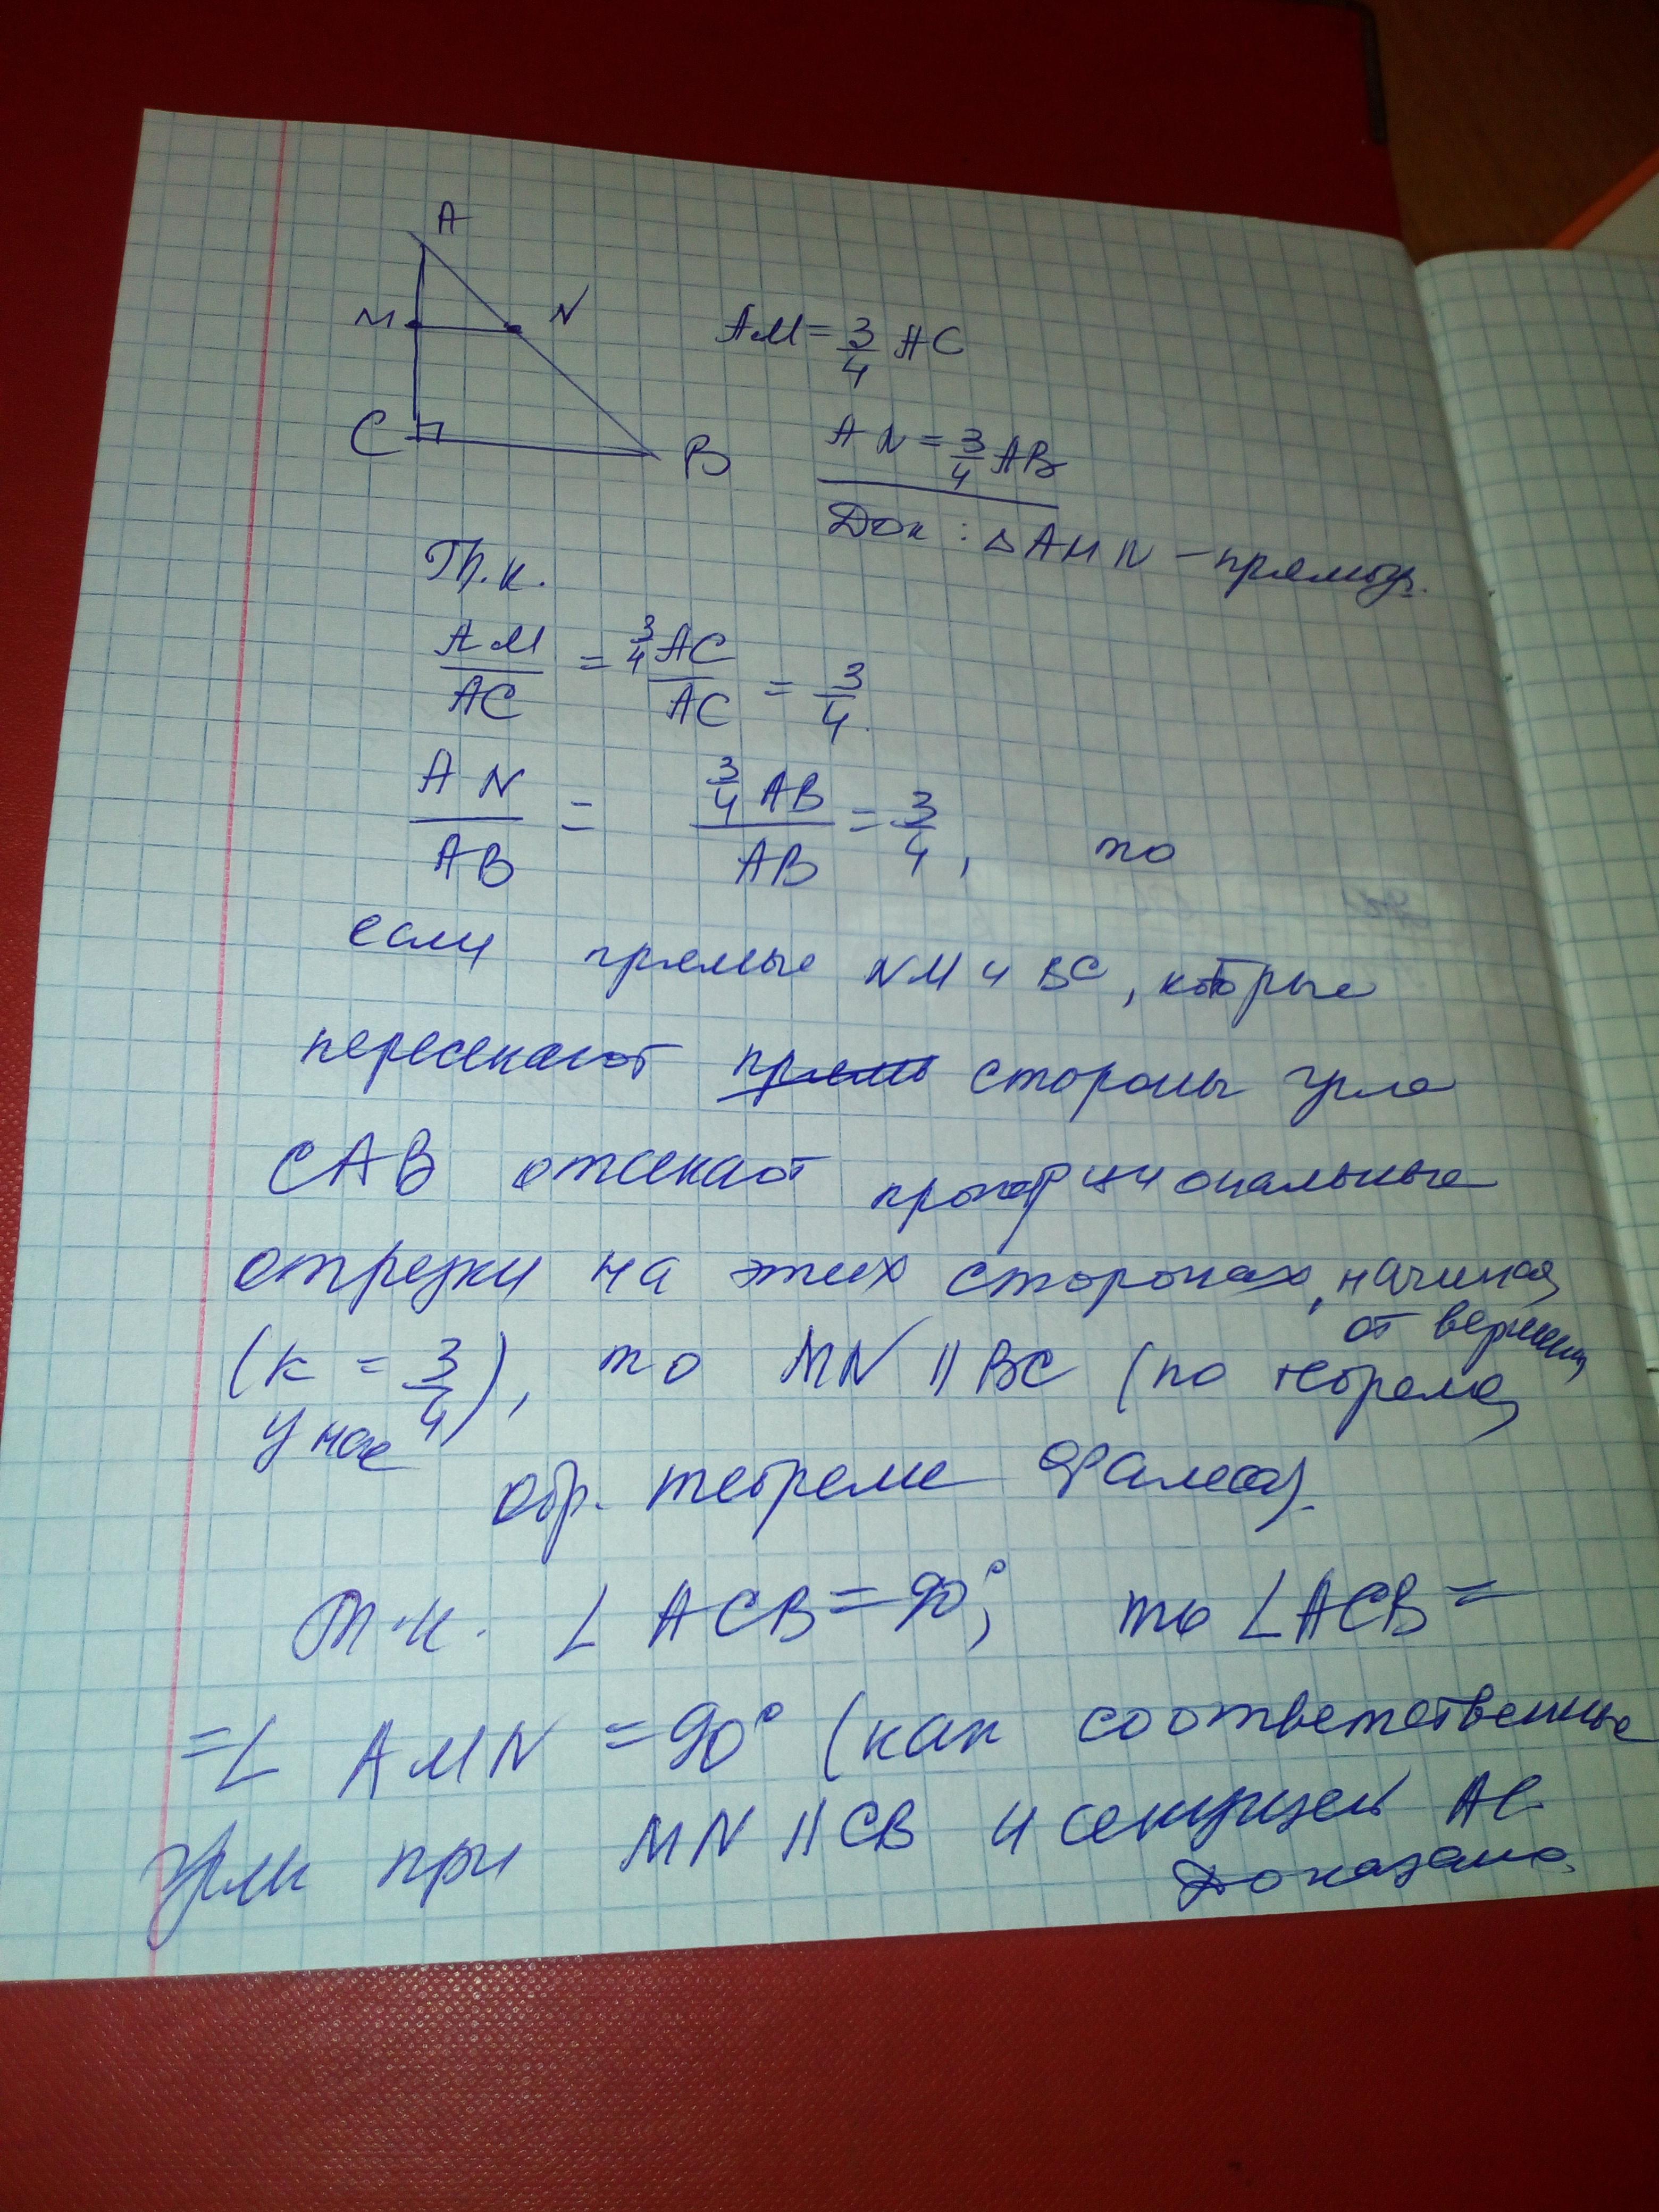 A
M N
C B
AM = 3/4 AC
AN = 3/4 AB
Док: △AMN – прямоуг.
Т.к.
AM/AC = 3/4 AC/AC = 3/4.
AN/AB = 3/4 AB/AB = 3/4, то
если прямые NM и BC, которые
пересекают стороны угла
CAB отсекают пропорциональные
отрезки на этих сторонах, начиная
от вершины
(к = 3/4), то MN || BC (по теореме,
у нас
обр. теореме Фалеса).
Т.к. ∠ACB = 90°, то ∠ACB =
= ∠AMN = 90° (как соответственные
углы при MN || CB и секущей AC
Доказано.